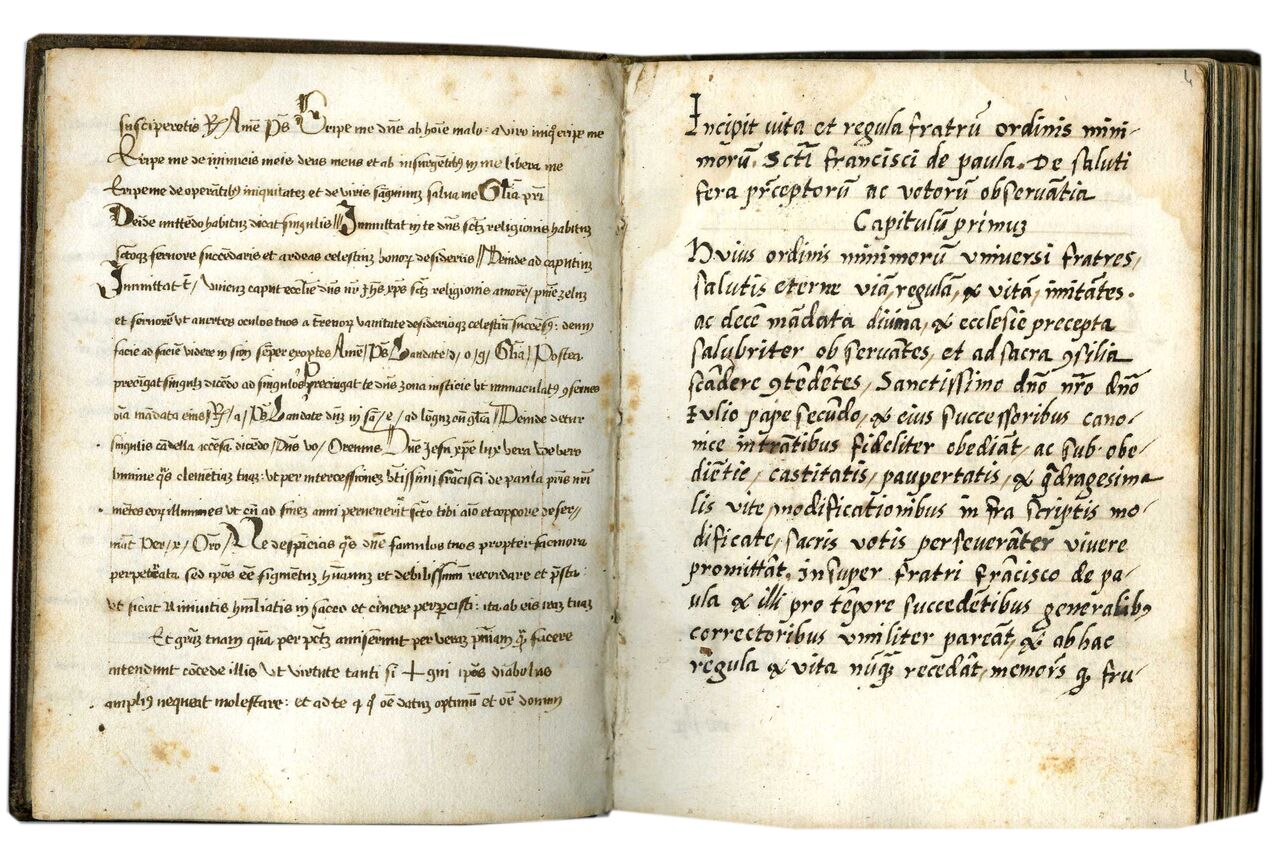 susciperetis R/ Amē P̄s Eripe me dn̄e ab hoīe malo: a viro iniq̄ eripe me
Eripe me de inimicis meis deus meus et ab insurgentibꝰ in me libera me
Eripe me de operantibꝰ iniquitatez et de viris sāguinuz salva me Gl̄ia pr̄i
Deīde mittēdo habituz dicat singulis // Jnmittat in te dn̄s sctē religionis habituz
fervore succēdaris et ardeas celestiuz honoꝝ desideriis // Deinde ad caputiuz
Jnmittat t̄ / Vnicuz caput ecclīe dn̄s nr̄ Jhs xp̄s sctē religionis amorē /
et fervorē vt avertes oculos tuos a vanitate
facie ad faciē videre in sion sēper exoptes Amē / P̄s Laudate / d / o / g / Gl̄ia / Postea
precīgat singulz dicēdo ad singulos precingat te dn̄s zona iusticie vt immaculatꝰ ꝯserves
oīa mādata eius R/ a / P̄s Laudate dn̄z in / e / Deinde detur
singulis cādella accēsa dicēdo / Dn̄s vo / Oremus Dn̄e Jesu xp̄e lux vera
lumine q̄s clemētiaz tuaz: vt per intercessionez frācisci de paula pr̄is nr̄i
mētes eoꝝ illumines vt cū ad finez anni pervenerīt sctō tibi aīo et corpore deser//
viāt Per / x / Or̄o / Ne despicias q̄s dn̄e famulos tuos propter facinora
perpetrata. sed ip̄os eē sigmētuz hūanuz et debilissimū recordare et p̄sta
vt sicut Ninivitis hūiliatis in sacco et cinere pepercisti: ita ab eis iraz tuaz
Et grāz tuam quā per pctz amiserunt per veraz pniam facere
intendunt cōcede illis vt virtute tanti si + gni ip̄os diabolus
ampliꝰ nequeat molestare: et ad te a q̄ oē datuz optimū et oē donuz
4
Incipit vita et regula fratrū ordinis mini-
morū. Sctī francisci de paula. De saluti
fera preceptorū ac votorū observātia
Capitulū primuz
Huius ordinis minimorū vniversi fratres,
salutis eterne viā, regulā, & vitā, imitātes.
ac decē mādata divina, & ecclesie precepta
salubriter observātes, et ad sacra ꝯsilia
scādere ꝯtēdētes, Sanctissimo dn̄o nr̄o dn̄o
Iulio pape secūdo, & eius successoribus cano-
nice intrātibus fideliter obediāt, ac sub obe-
diētie, castitatis, paupertatis, & q̄dragesima
lis vite, modificationibus infra scriptis mo-
dificate, sacris votis perseverāter vivere
promittāt. insuper fratri frācisco de pa-
ula & illi pro tēpore succedētibus generalibꝰ
correctoribus vmiliter pareāt, & ab hac
regula & vita nūq̄ȝ recedāt, memor̄s q̄ fru-